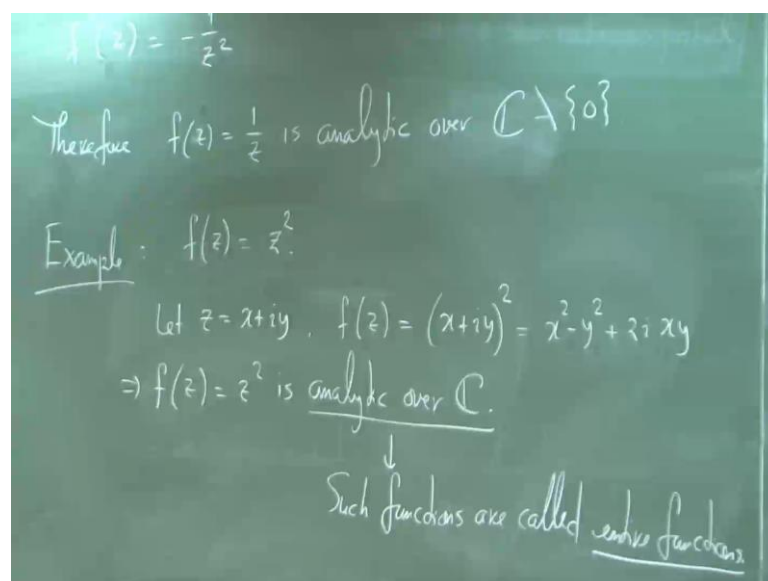 f'(z) = - 1/z²
Therefore f(z) = 1/z is analytic over ℂ \ {0}
Example : f(z) = z².
Let z = x+iy . f(z) = (x+iy)² = x²-y²+2i xy
⇒ f(z) = z² is analytic over ℂ.
↓
Such functions are called entire functions